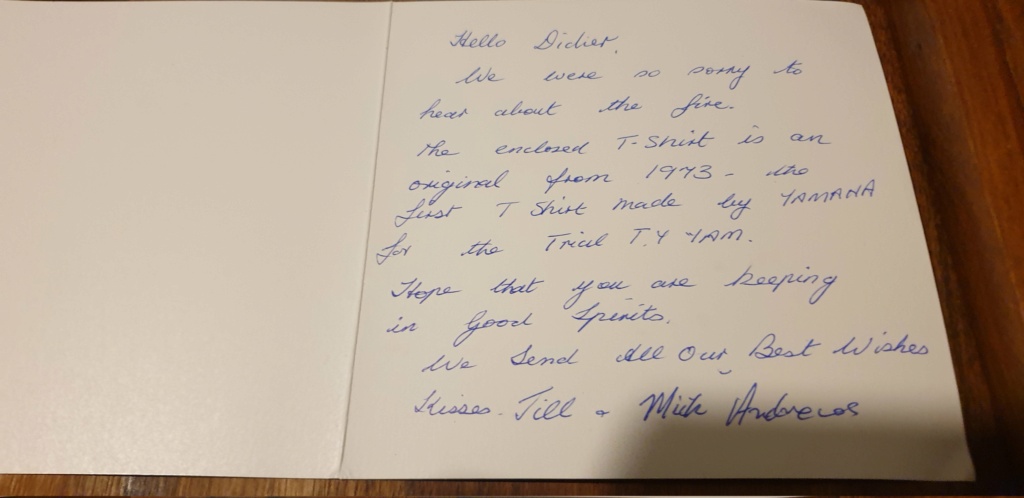 Hello Didier,
We were so sorry to
hear about the fire.
The enclosed T-Shirt is an
original from 1973 - the
first T Shirt made by YAMAHA
for the Trial T.Y YAM.
Hope that you are keeping
in Good Spirits.
We Send All Our Best Wishes
Kisses. Jill & Mick Andrews